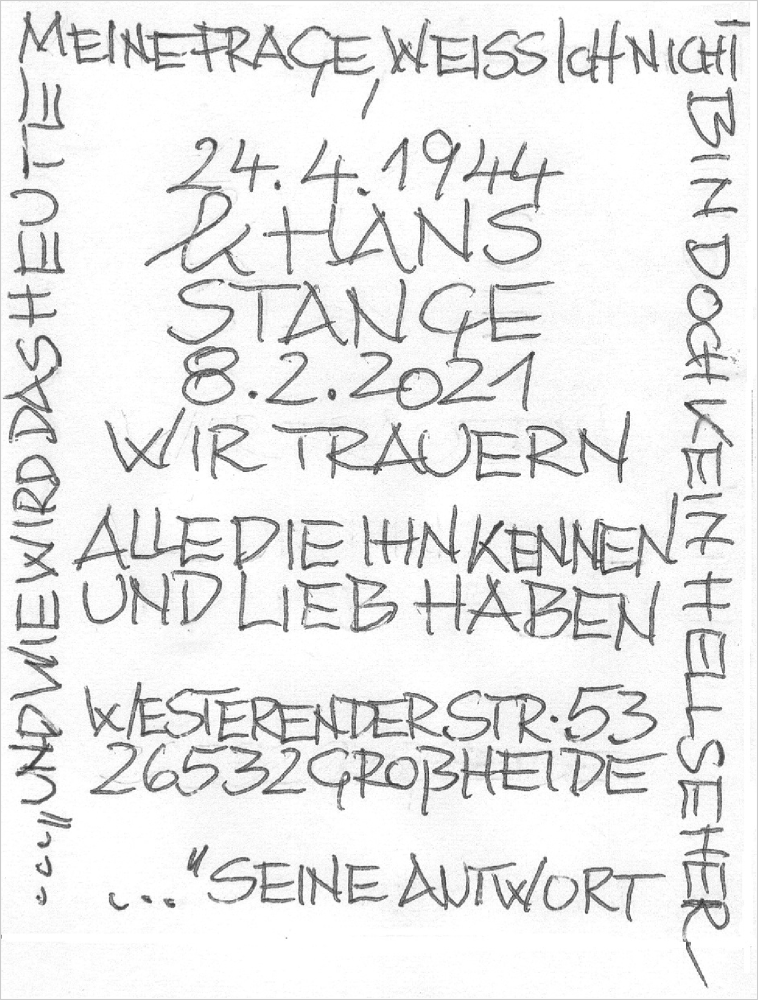 ..."UND WIE WIRD DAS HEUTE
MEINE FRAGE, WEISS ICH NICHT
BIN DOCH KEIN HELLSEHER,
..." SEINE ANTWORT
24.4.1944
& HANS
STANGE
8.2.2021
WIR TRAUERN
ALLE DIE IHN KENNEN
UND LIEB HABEN
WESTERENDER STR. 53
26532 GROßHEIDE